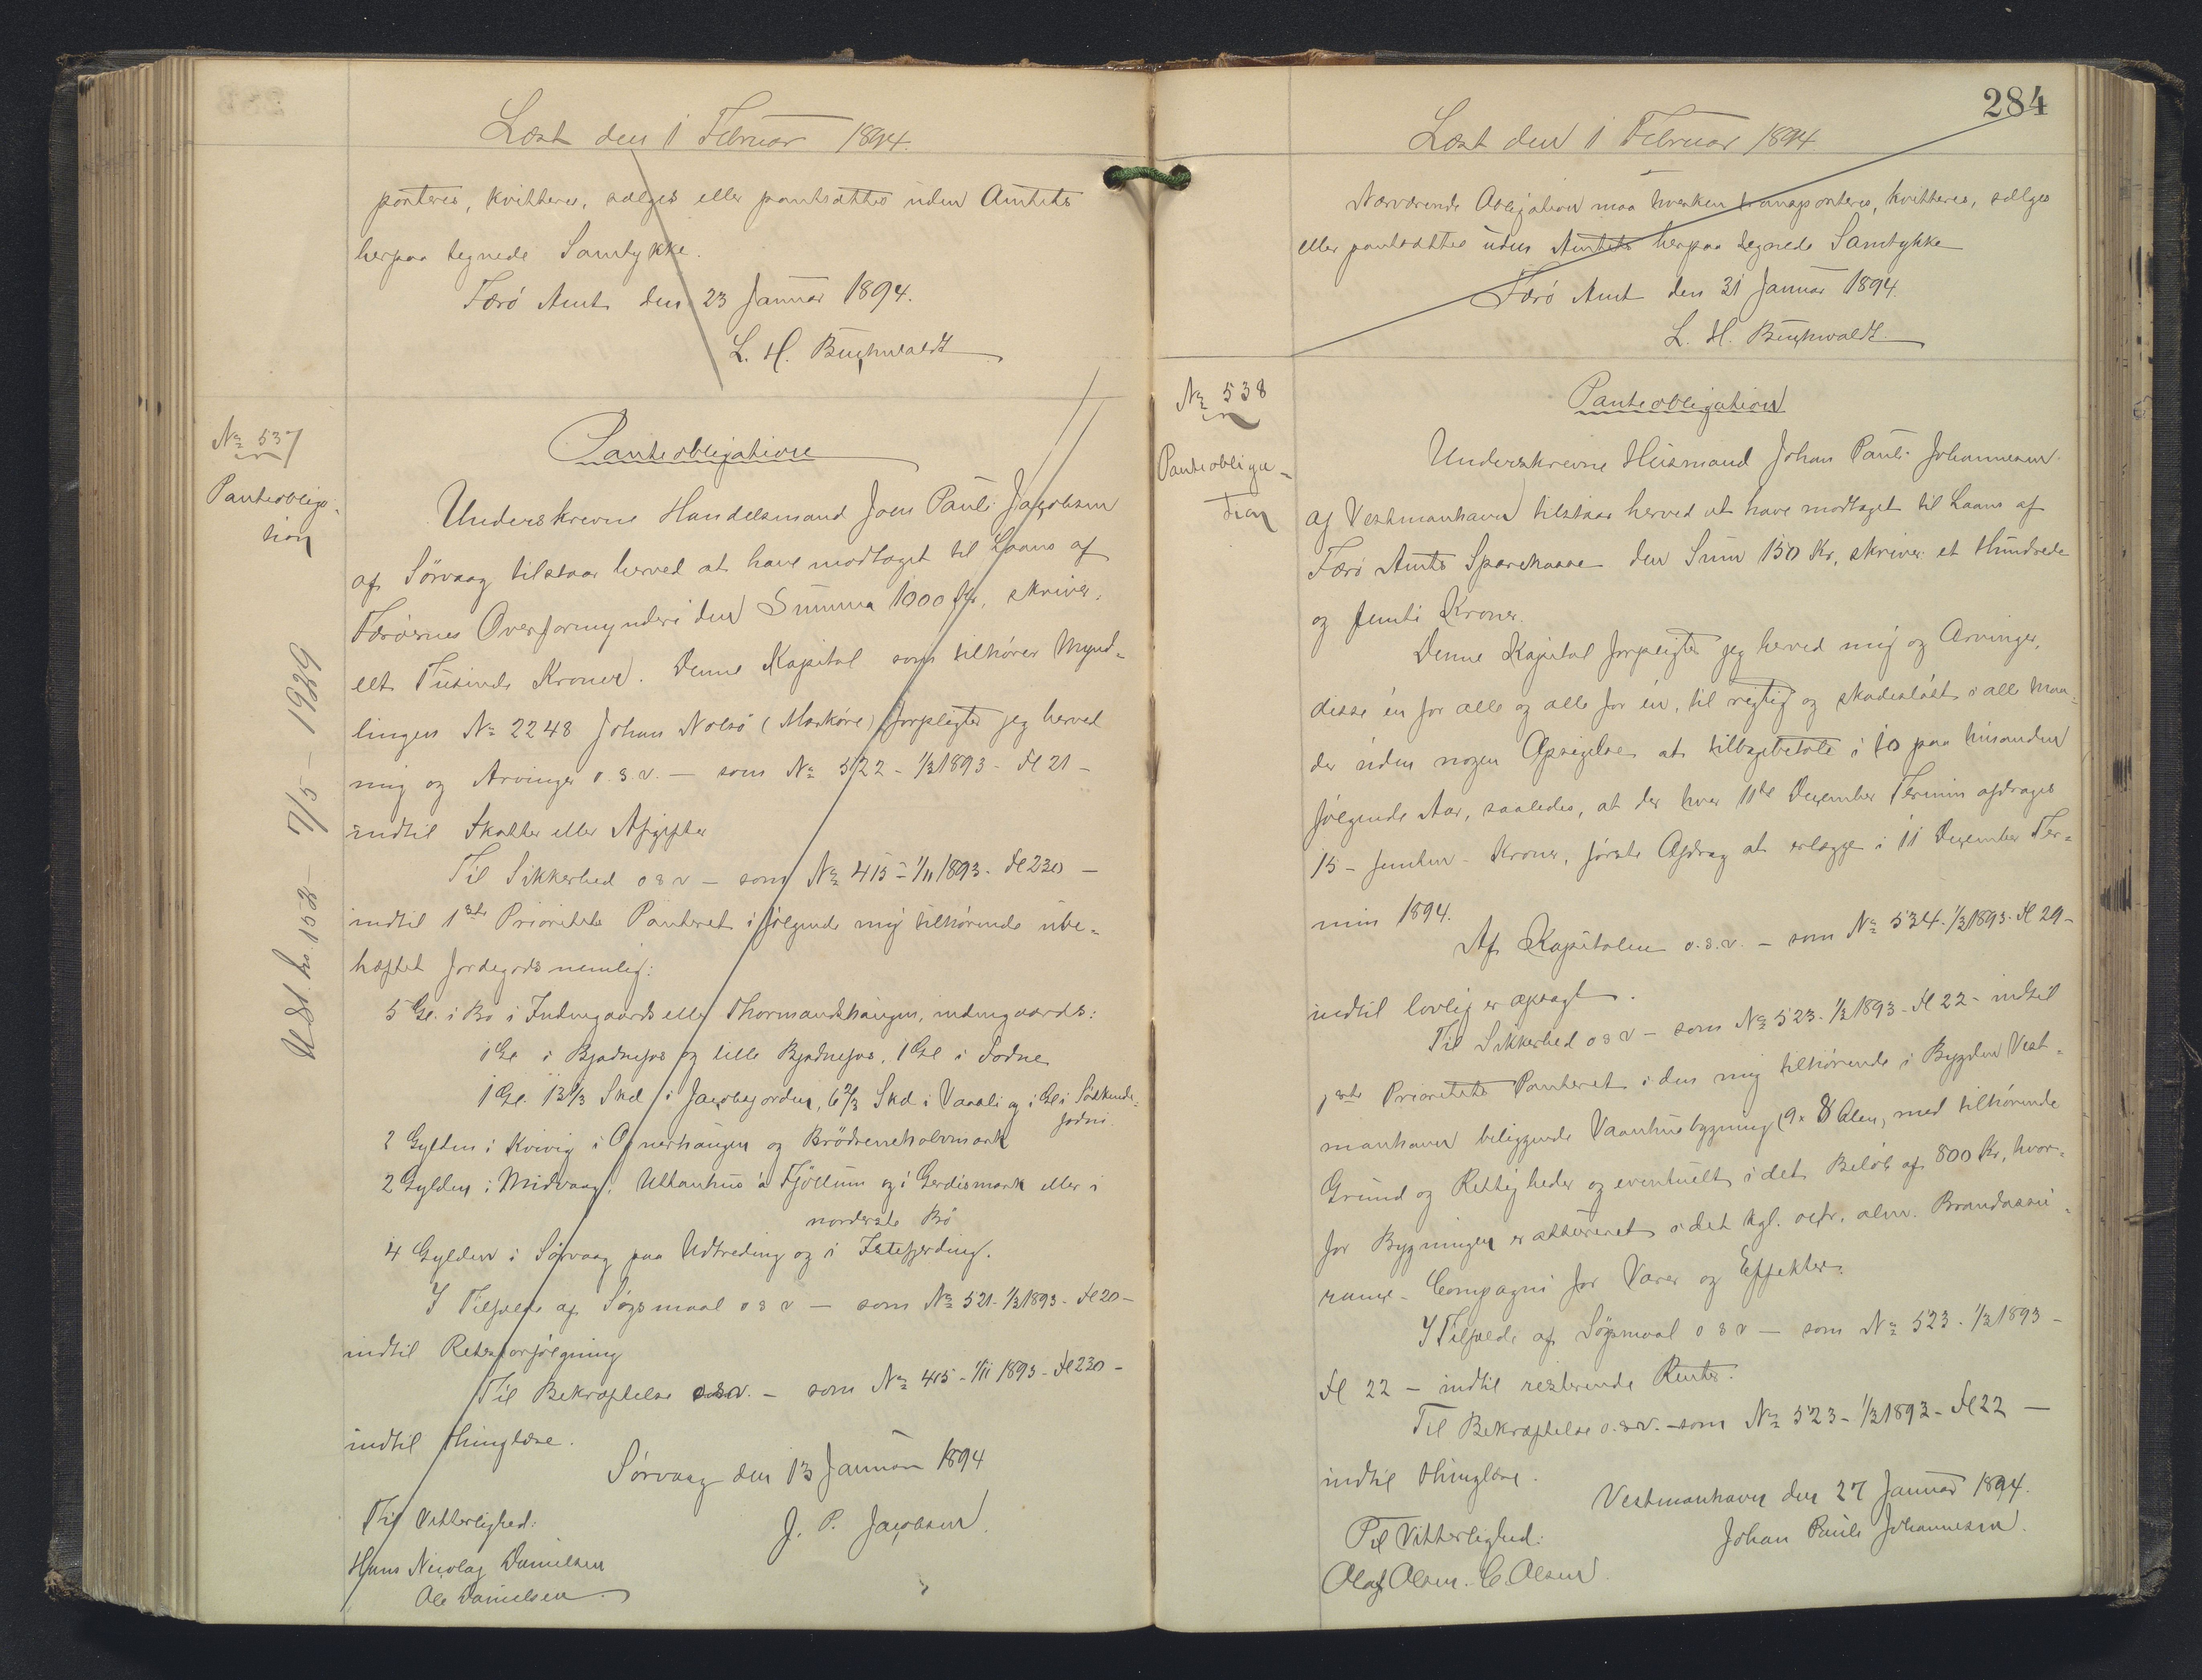 Læst den 1 Februar 1894.
porteres, kvitteres, sælges eller pantsættes uden Amtets
herpaa tegnede Samtykke.
Færö Amt den 23 Januar 1894.
L. H. Buchwaldt
No 537
Panteobliga-
tion
Panteobligation
Underskrevne Handelsmand Joen Pauli Jacobsen
af Sörvaag tilstaar herved at have modtaget til Laans af
Færöernes Overformynderi den Summa 1000 Kr, skriver,
ett Tusinde Kroner. Denne Kapital som tilhörer Mynd-
lingen No 2248 Johan Nolsö (Morköre) forpligter jeg herved
mig og Arvinger o. s. v. — som No 522 - 1/2 1893 - Fl 21 -
indtil Skatter eller Afgifter
Til Sikkerhed o s v — som No 415 - 1/11 1893. Fl 230 —
indtil 1ste Prioritets Panteret i fölgende mig tilhörende ube-
hæftet Jordegods nemlig:
5 Gl. i Bö i Indengaards eller Thormandshaugen, indengaards:
1 Gl i Bjadnefos og lille Bjadnefos, 1 Gl i
1 Gl. 13 1/3 Skd i Jacobsgorden, 6 2/3 Skd i Vaali og 1 Gl i Söskende-
jordni.
2 Gylden i Kvivig i Ognerhaugen og Brödreneholvmark
2 Gylden i Midvaag, Uttanhus á Fjöllum og i Gerdismark eller i
norderste Bö
4 Gylden i Sörvaag paa Udtreding og i
I Tilfælde af Sögsmaal o s v — som No 521 - 1/2 1893 - Fl 20 —
indtil Retsforfölgning
Til Bekræftelse o.s.v. — som No 415 - 1/11 1893 - Fl 230 —
indtil thinglæse.
Sörvaag den 13 Januar 1894
Til Vitterlighed:
J. P. Jacobsen.
Hans Nicolag Danielsen
Ole Danielsen
Udsl. 7/5 - 1929
284
Læst den 1 Februar 1894
Nærværende Obligation maa hverken transporteres, kvitteres, sælges
eller pantsættes uden Amtets herpaa tegnede Samtykke
Færö Amt den 31 Januar 1894.
L. H. Buchwaldt.
No 538
Panteobliga-
tion
Panteobligation
Underskrevne Husmand Johan Pauli Johannesen
af Vestmanhavn tilstaar herved at have modtaget til Laans af
Færö Amts Sparekasse den Sum 150 Kr, skriver et Hundrede
og femti Kroner.
Denne Kapital forpligter jeg herved mig og Arvinger,
disse én for alle og alle for én, til rigtig og skadeslöst i alle Maa-
der uden nogen Opsigelse at tilbagebetale i 10 paa hinanden
fölgende Aar, saaledes, at der hver 11te December Termin afdrages
15 - femten - Kroner, förste Afdrag at erlægge i 11 December Ter-
min 1894.
Af Kapitalen o. s. v. — som No 534. 1/2 1893. Fl 29 -
indtil lovlig er opsagt.
Til Sikkerhed o s v — som No 523. 1/2 1893 - Fl 22 - indtil
1ste Prioritets Panteret i den mig tilhörende i Bygden Vest-
manhavn beliggende Vaanhusbygning (9 x 8 Alen, med tilhörende
Grund og Rettigheder og eventuelt i det Belöb af 800 Kr, hvor-
for Bygningen er assureret i det kgl. octr. alm. Brandassu-
rance - Compagni for Varer og Effekter.
I Tilfælde af Sögsmaal o s v — som No 523. 1/2 1893 -
Fl 22 — indtil resterende Renter.
Til Bekræftelse o. s. v. - som No 523 - 1/2 1893 - Fl 22 —
indtil thinglæse.
Vestmanhavn den 27 Januar 1894.
Til Vitterlighed:
Johan Pauli Johannesen.
Olaf Olsen. C. Olsen.